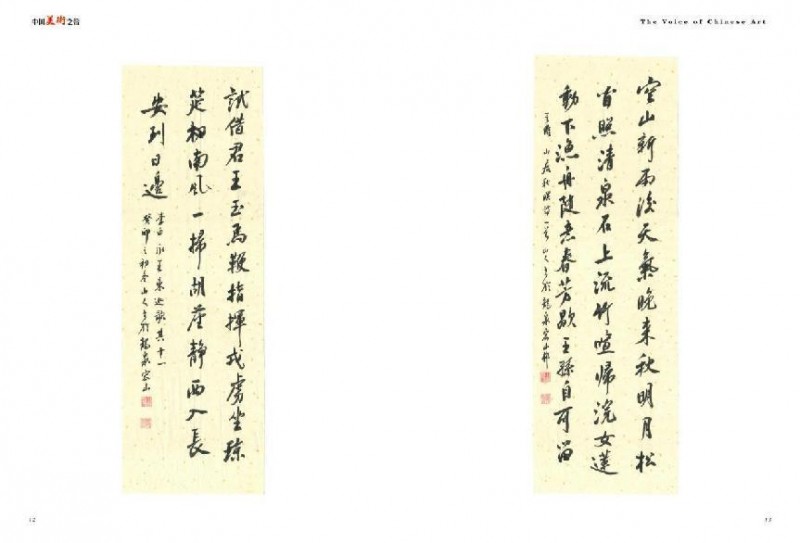 中国美術之音
The Voice of Chinese Art
試借君王玉馬鞭指揮戎虜坐瓊
筵南風一掃胡塵靜西入長
安到日邊
李白永王東巡歌其十一
癸卯之初春山人書於龍泉空山
空山新雨後天氣晚来秋明月松
间照清泉石上流竹喧歸浣女蓮
動下漁舟随意春芳歇王孫自可留
王維山居秋暝詩一首山人書於龍泉空山邨
12
13